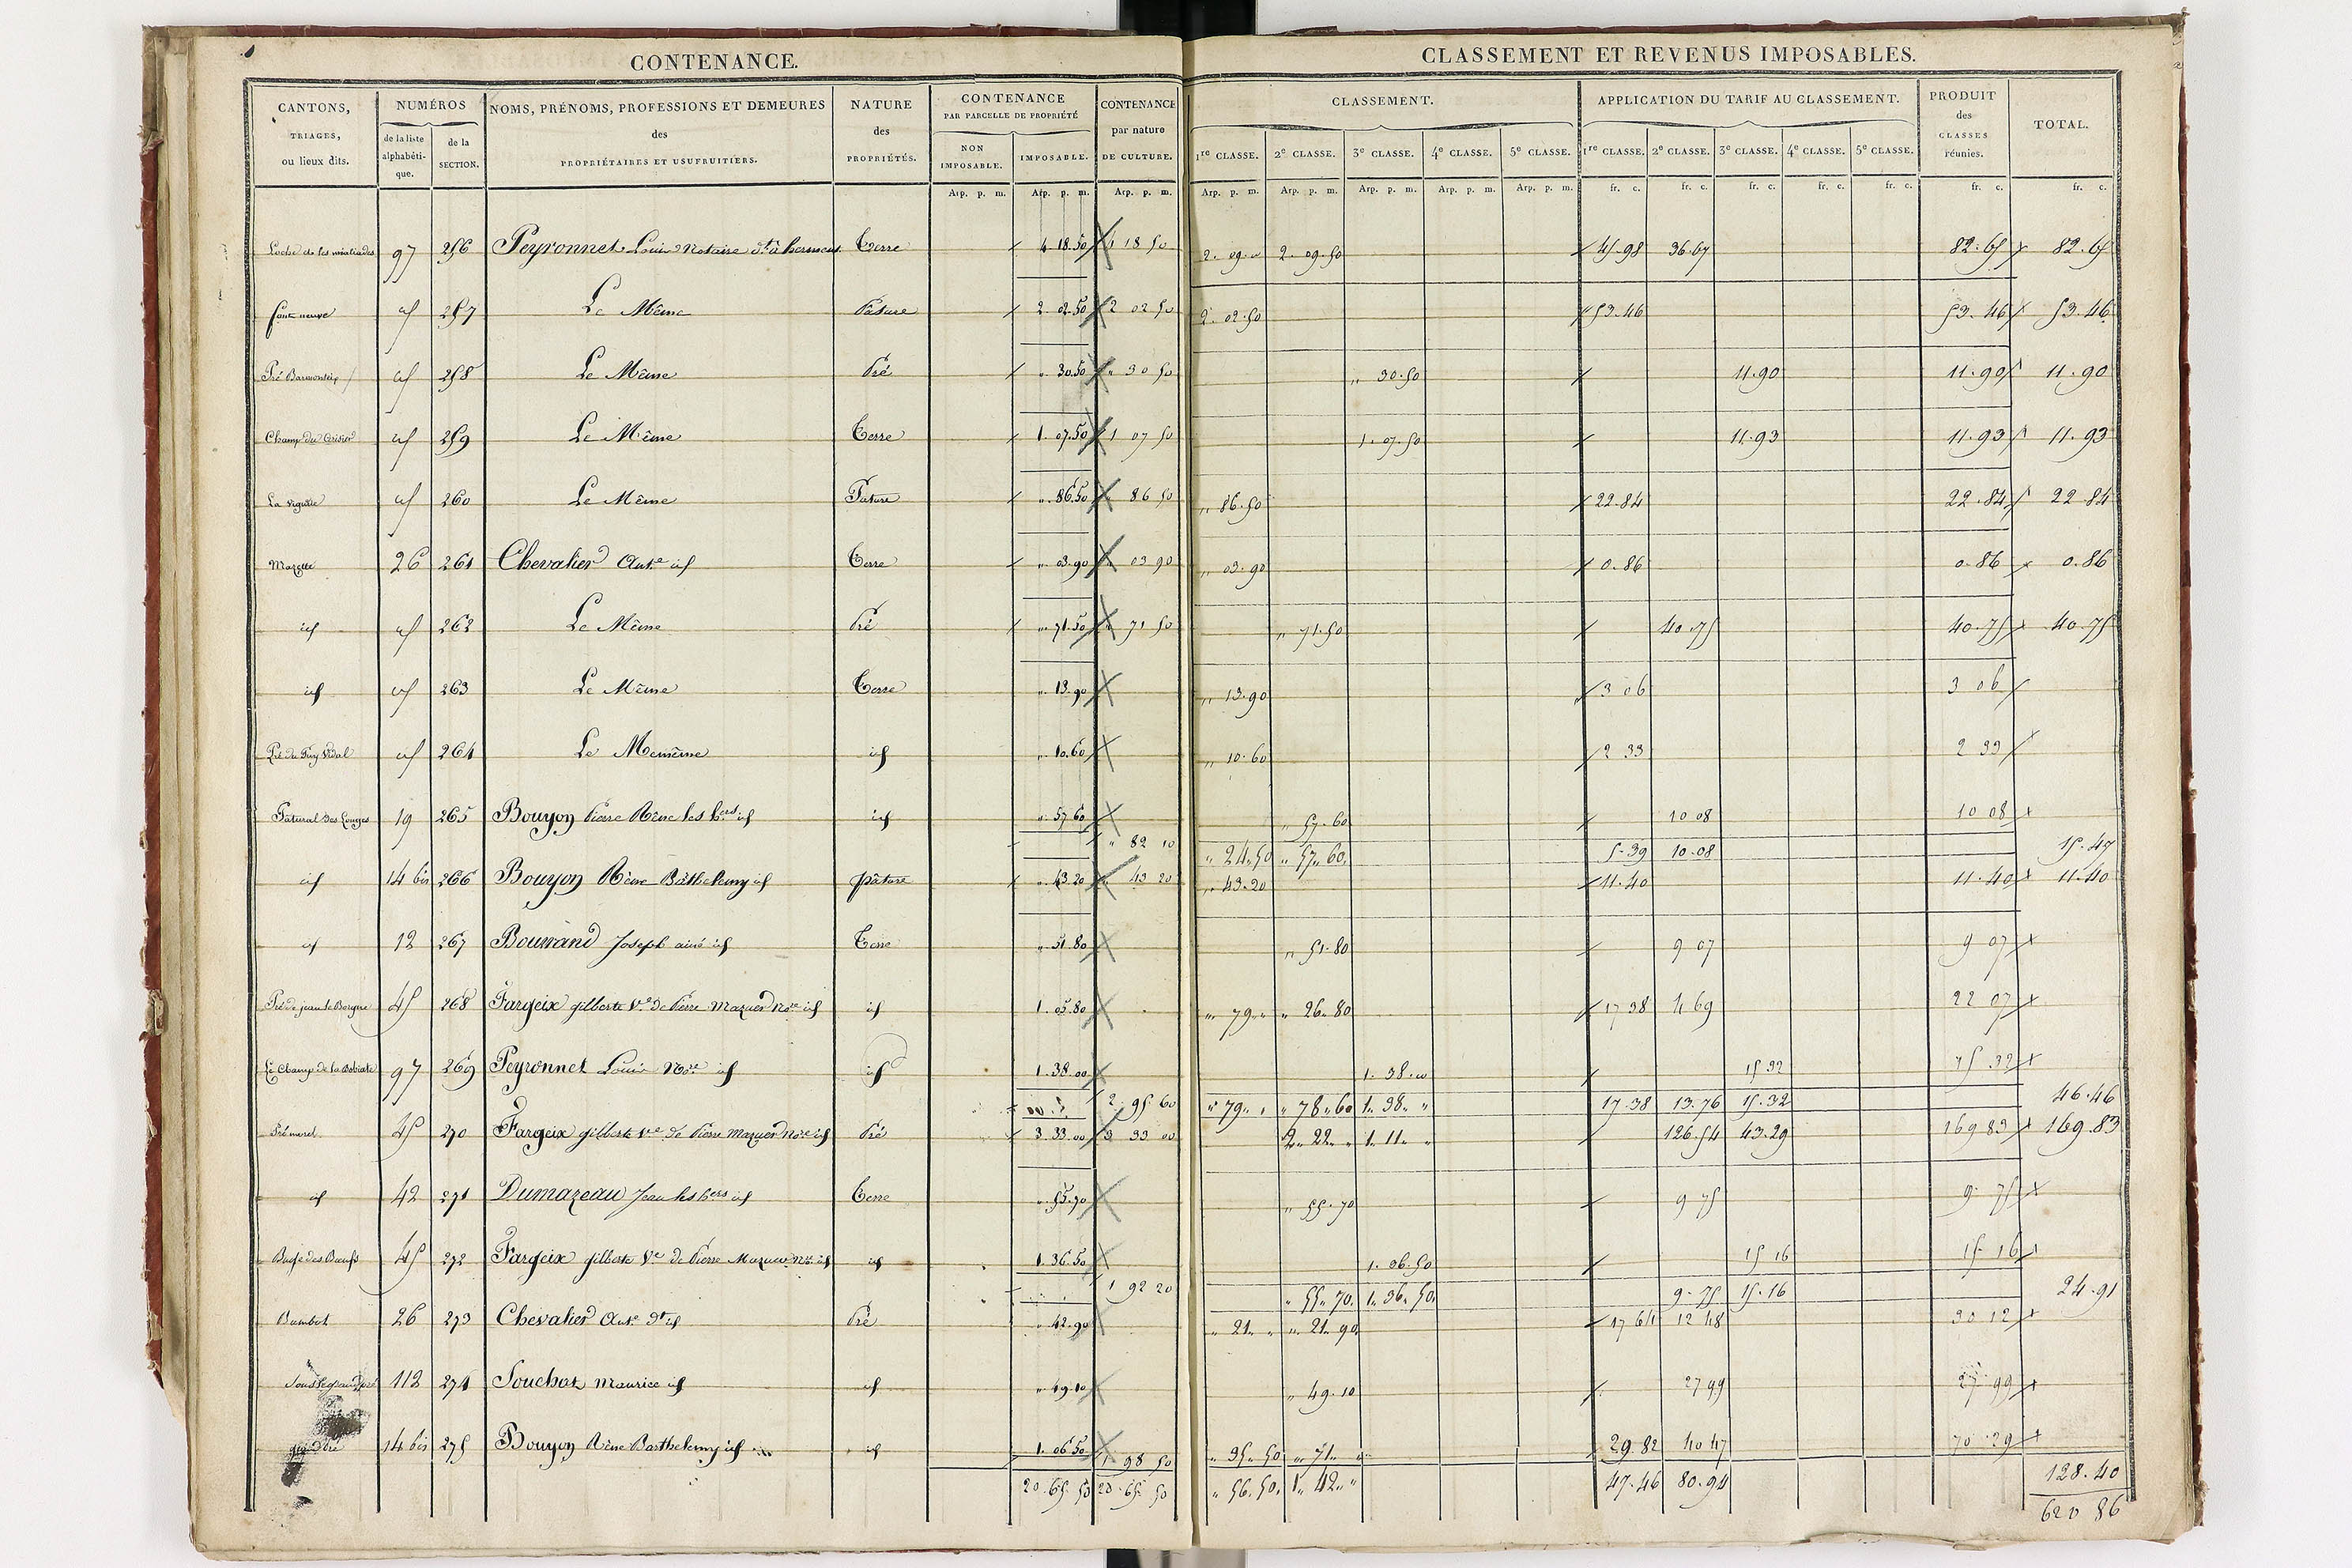 CONTENANCE.
CLASSEMENT ET REVENUS IMPOSABLES.
CANTONS, TRIAGES, ou lieux dits.
NUMÉROS
de la liste alphabétique.
de la SECTION.
NOMS, PRÉNOMS, PROFESSIONS ET DEMEURES des PROPRIÉTAIRES ET USUFRUITIERS.
NATURE des PROPRIÉTÉS.
CONTENANCE PAR PARCELLE DE PROPRIÉTÉ
NON IMPOSABLE.
IMPOSABLE.
CONTENANCE par nature DE CULTURE.
CLASSEMENT.
1re CLASSE. 2e CLASSE. 3e CLASSE. 4e CLASSE. 5e CLASSE.
APPLICATION DU TARIF AU CLASSEMENT.
1re CLASSE. 2e CLASSE. 3e CLASSE. 4e CLASSE. 5e CLASSE.
PRODUIT des CLASSES réunies.
TOTAL.
Arp. p. m. Arp. p. m. Arp. p. m. Arp. p. m. Arp. p. m. Arp. p. m. Arp. p. m. Arp. p. m. fr. c. fr. c. fr. c. fr. c. fr. c. fr. c. fr. c.
97 256 Peyronnet Louis Notaire dt à herment Terre 4. 18. 50 4 18 50 2. 09. " 2. 09. 50 45. 98 36. 67 82. 65 82. 65
Font neuve id 257 Le Même Pature 2. 02. 50 2 02 50 2. 02. 50 53. 46 53. 46 53. 46
id 258 Le Même Pré " 30. 50 " 30 50 " 30. 50 11. 90 11. 90 11. 90
Champ du Cerisier id 259 Le Même Terre 1. 07. 50 1 07 50 1. 07. 50 11. 93 11. 93 11. 93
id 260 Le Même Pature " 86. 50 86 50 " 86. 50 22. 84 22. 84 22 84
Mazette 26 261 Chevalier Ante id Terre " 03. 90 03 90 " 03. 90 0. 86 0. 86 0. 86
id id 262 Le Même Pré " 71. 50 71 50 " 71. 50 40. 75 40. 75 40. 75
id id 263 Le Même Terre " 13. 90 " 13. 90 3 06 3 06
Pré du Puy Vidal id 264 Le Memême id " 10. 60 " 10. 60 2 33 2 33
Pâtural des Longes 19 265 Bouyon Pierre Rême les hers id id " 57. 60 " 57. 60 10 08 10 08
" 82 10 " 24. 50 " 57. 60. 5. 39 10. 08 15. 47
id 14 bis 266 Bouyon Rême Barthelemy id pâture " 43. 20 43 20 " 43. 20 11. 40 11. 40 11. 40
id 12 267 Bourrand Joseph ainé id Terre " 51. 80 " 51. 80 9 07 9 07
45 268 Fargeix gilberte Ve de Pierre Mazuer Nore id id 1. 05. 80 " 79. " " 26. 80 17 38 4 69 22 07
Le Champ de la 97 269 Peyronnet Louis Nore id id 1. 38. 00 1. 38. 00 15 32 15. 32
2. 95 60 " 79. " " 78. 60 1. 38. " 17. 38 13. 76 15. 32 46. 46
45 270 Fargeix gilberte Ve de Pierre Mazuer Nore id Pré 3. 33. 00 3 33 00 2. 22. " 1. 11. " 126. 54 43. 29 169 83 169. 83
id 42 271 Dumazeau Jean les hers id Terre " 55. 70 " 55. 70 9 75 9. 75
45 272 Fargeix gilberte Ve de Pierre Mazuer Nore id id 1. 36. 50 1. 36. 50 15 16 15. 16
1 92 20 " 55. 70. 1. 36. 50. 9. 75 15. 16 24. 91
26 273 Chevalier Ante dt id Pré " 42. 90 " 21. " " 21. 90 17 64 12 48 30 12
112 274 Souchat Maurice id id " 49. 10 " 49. 10 27 99 27 99
14 bis 275 Bouyon Rême Barthelemy id id 1. 06. 50 " 35. 50 " 71. " 29. 82 40 47 70 29
1 98 50
20. 65. 50 20. 65. 50 " 56. 50. 1. 42. " 47. 46 80. 94 128. 40
620 86